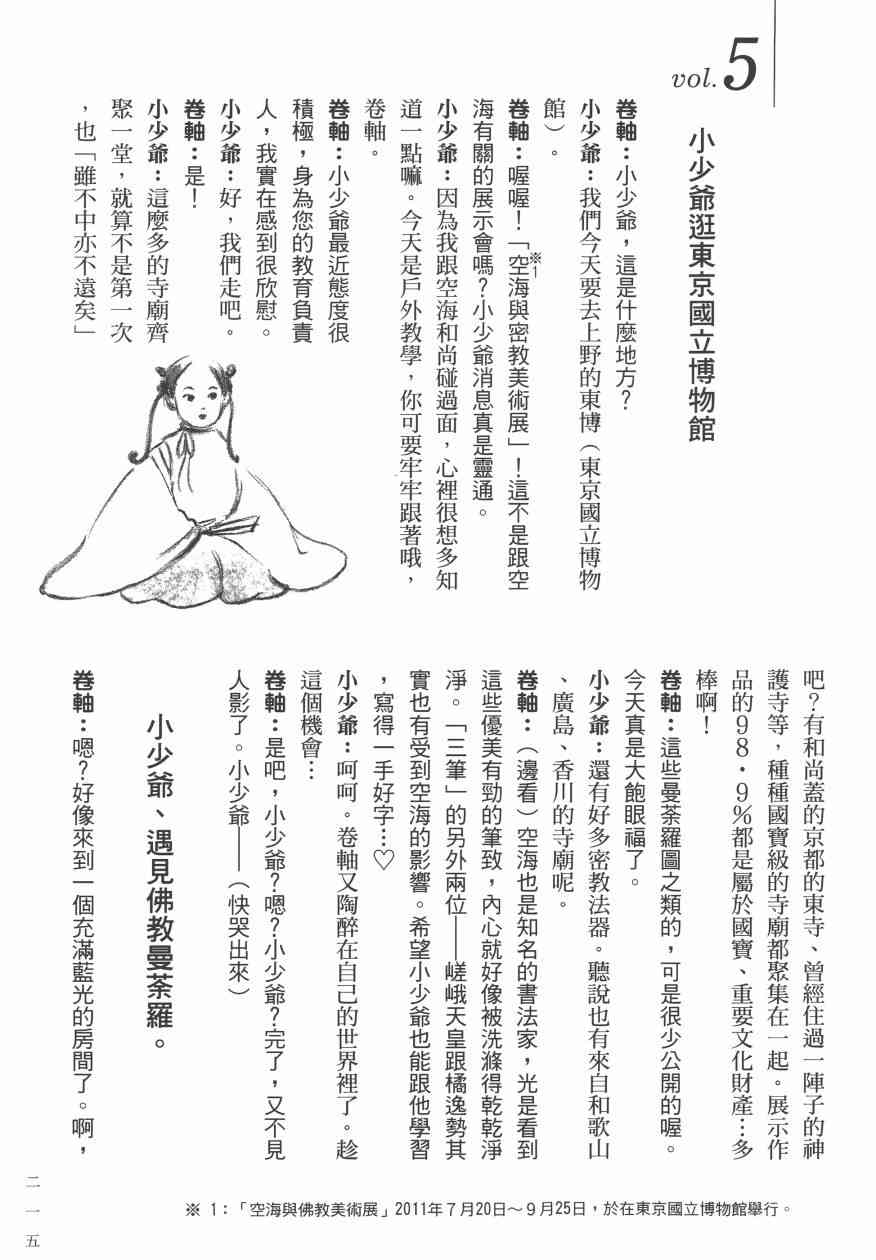 vol.5
小少爺逛東京國立博物館
卷軸：小少爺，這是什麼地方？
小少爺：我們今天要去上野的東博（東京國立博物
館）。
卷軸：喔喔！「空海與密教美術展」！這不是跟空
※1
海有關的展示會嗎？小少爺消息真是靈通。
小少爺：因為我跟空海和尚碰過面，心裡很想多知
道一點嘛。今天是戶外教學，你可要牢牢跟著哦，
卷軸。
卷軸：小少爺最近態度很
積極，身為您的教育負責
人，我實在感到很欣慰。
小少爺：好，我們走吧。
卷軸：是！
小少爺：這麼多的寺廟齊
聚一堂，就算不是第一次
，也「雖不中亦不遠矣」
吧？有和尚蓋的京都的東寺、曾經住過一陣子的神
護寺等，種種國寶級的寺廟都聚集在一起。展示作
品的98．9％都是屬於國寶、重要文化財產…多
棒啊！
卷軸：這些曼荼羅圖之類的，可是很少公開的喔。
今天真是大飽眼福了。
小少爺：還有好多密教法器。聽說也有來自和歌山
、廣島、香川的寺廟呢。
卷軸：（邊看）空海也是知名的書法家，光是看到
這些優美有勁的筆致，內心就好像被洗滌得乾乾淨
淨。「三筆」的另外兩位——嵯峨天皇跟橘逸勢其
實也有受到空海的影響。希望小少爺也能跟他學習
，寫得一手好字…♡
小少爺：呵呵。卷軸又陶醉在自己的世界裡了。趁
這個機會…
卷軸：是吧，小少爺？嗯？小少爺？完了，又不見
人影了。小少爺——（快哭出來）
小少爺、遇見佛教曼荼羅。
卷軸：嗯？好像來到一個充滿藍光的房間了。啊，
※ 1：「空海與佛教美術展」2011年７月20日～９月25日，於在東京國立博物館舉行。
二一五